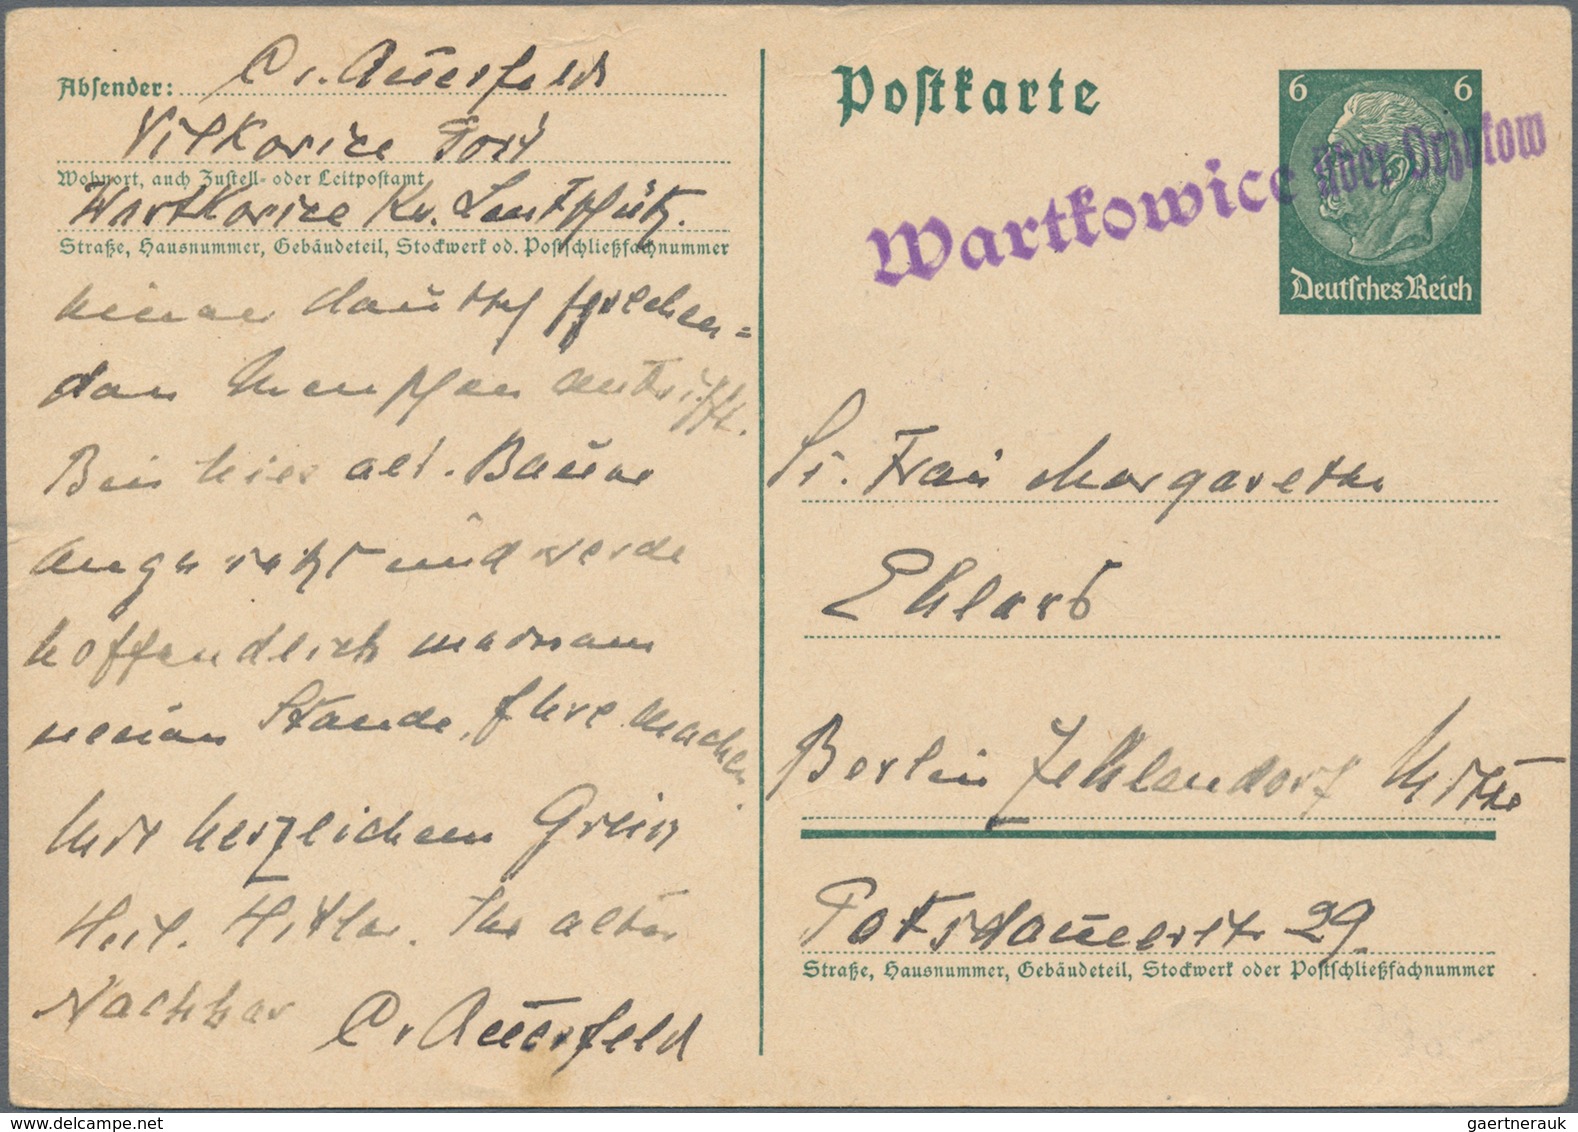 Absender: C v. Auerfeld
Witkowice Post
Wohnort, auch Zustell- oder Leitpostamt
Wartkowice Kr. Lentschütz.
Straße, Hausnummer, Gebäudeteil, Stockwerk od. Postschließfachnummer
keinen deutsch sprechen=
den Menschen antrifft.
Bin hier als Bauer
angesetzt und werde
hoffendlich
meinem Stande Ehre machen.
Mit herzlichem Gruß
Heil. Hitler. Ihr alter
Nachbar C v Auerfeld
Postkarte
6 6
Deutsches Reich
Wartkowice über Ozorkow
Frau Margarethe
Ehlert
Berlin Zehlendorf Mitte
Potsdamerstr 29.
Straße, Hausnummer, Gebäudeteil, Stockwerk oder Postschließfachnummer
gaertnerauk @ delcampe.net